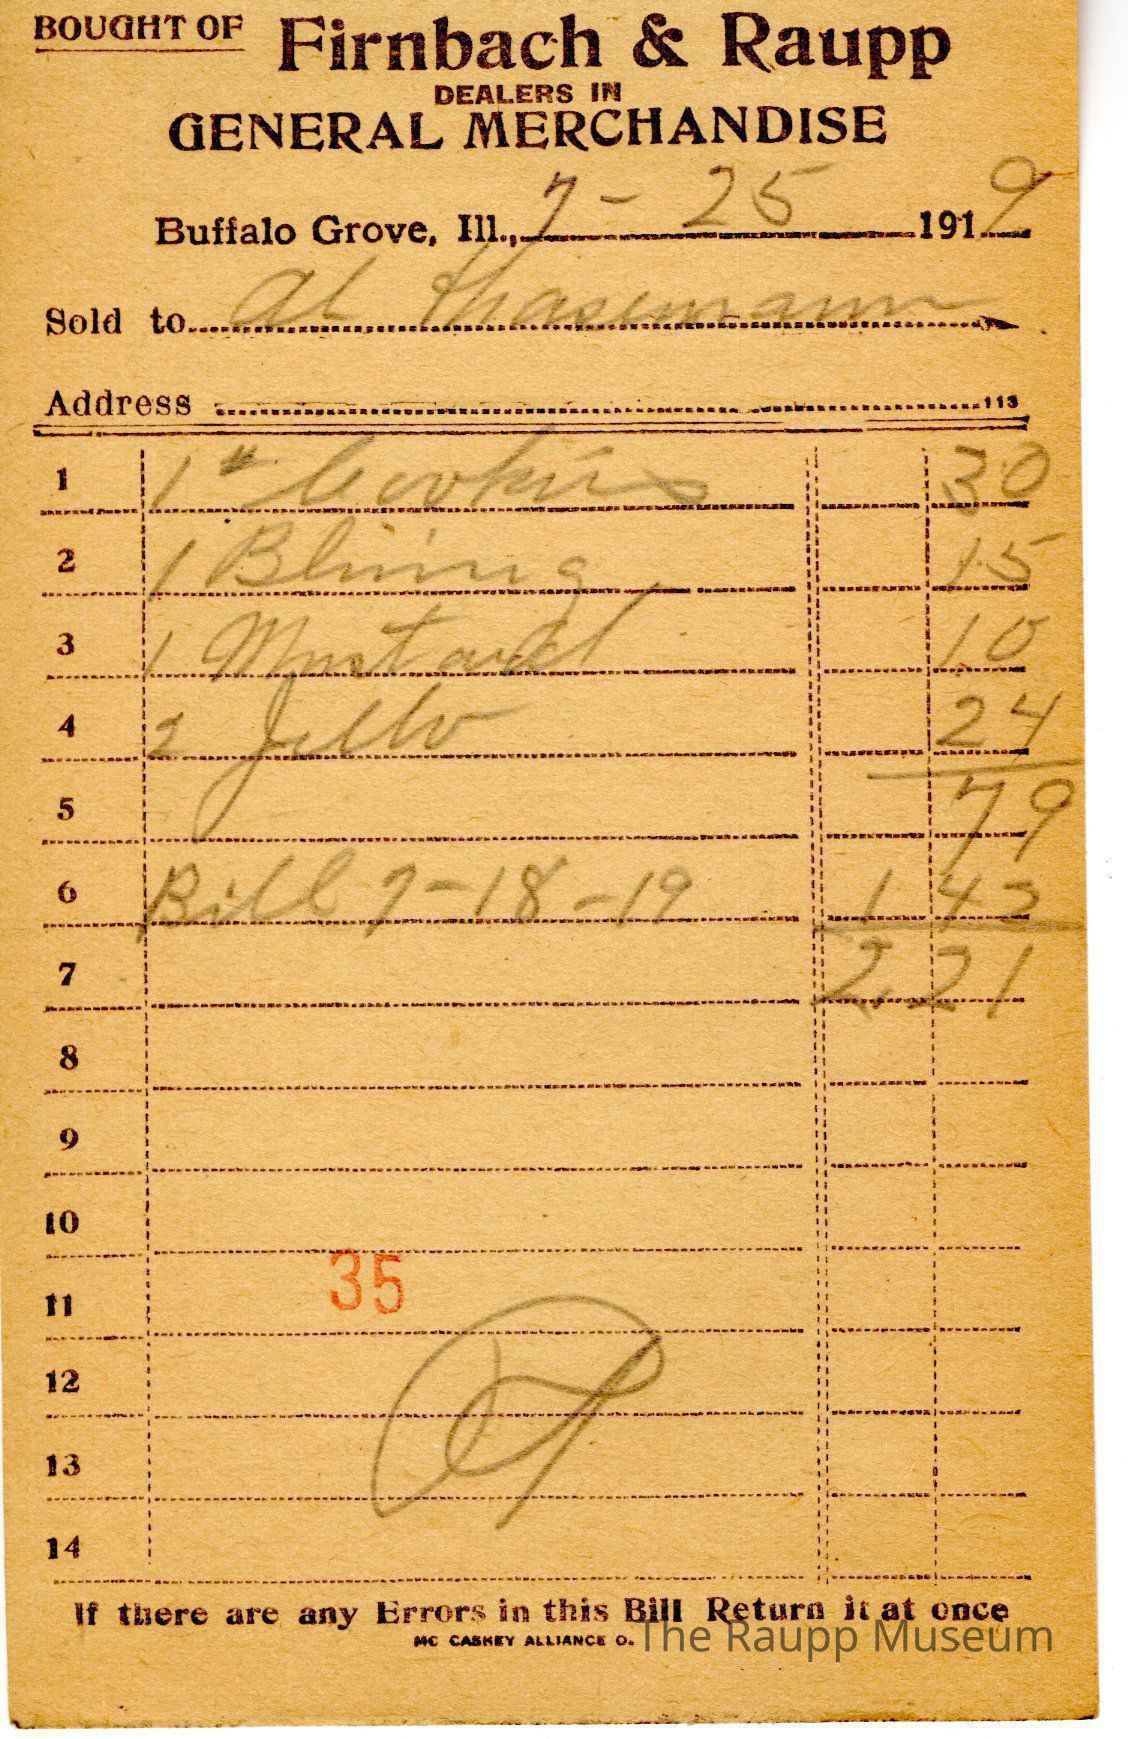 BOUGHT OF Firnbach & Raupp
DEALERS IN
GENERAL MERCHANDISE
Buffalo Grove, Ill., 7-25 1919
Sold to Al Thasemann
Address 113
1 1# Cookies 30
2 1 Bluing 15
3 1 Mustard 10
4 2 Jello 24
5 79
6 Bill 7-18-19 1 42
7 2.21
8
9
10
35
11
12
13
14
If there are any Errors in this Bill Return it at once
MC CASKEY ALLIANCE O.
The Raupp Museum